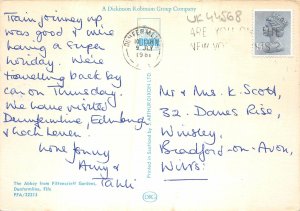 A Dickinson Robinson Group Company
UK44568
Train journey up
was good & we're
having a super
holiday. We're
travelling back by
car on Thursday.
We have visited
Dunfermline, Edinburgh
& Loch Leven.
Love Jenny
Amy &
DUNFERMLINE
9 JLY
ARE YOU
Mr & Mrs K. Scott,
32. Danes Rise,
Winsley,
Bradford-on-Avon,
Wilts.
Printed in Scotland
J. ARTHUR DIXON LTD
The Abbey from Pittencrieff Gardens,
Dunfermline, Fife.
PFA/22273
DRG